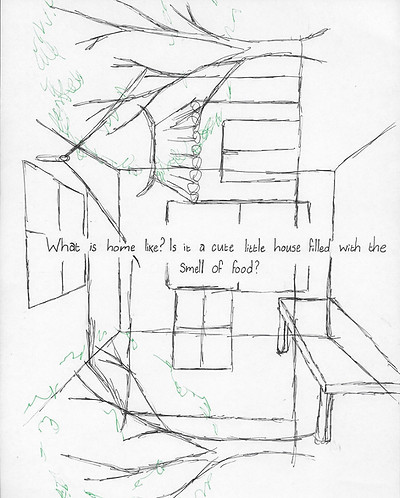 What is home like? Is it a cute little house filled with the
smell of food?